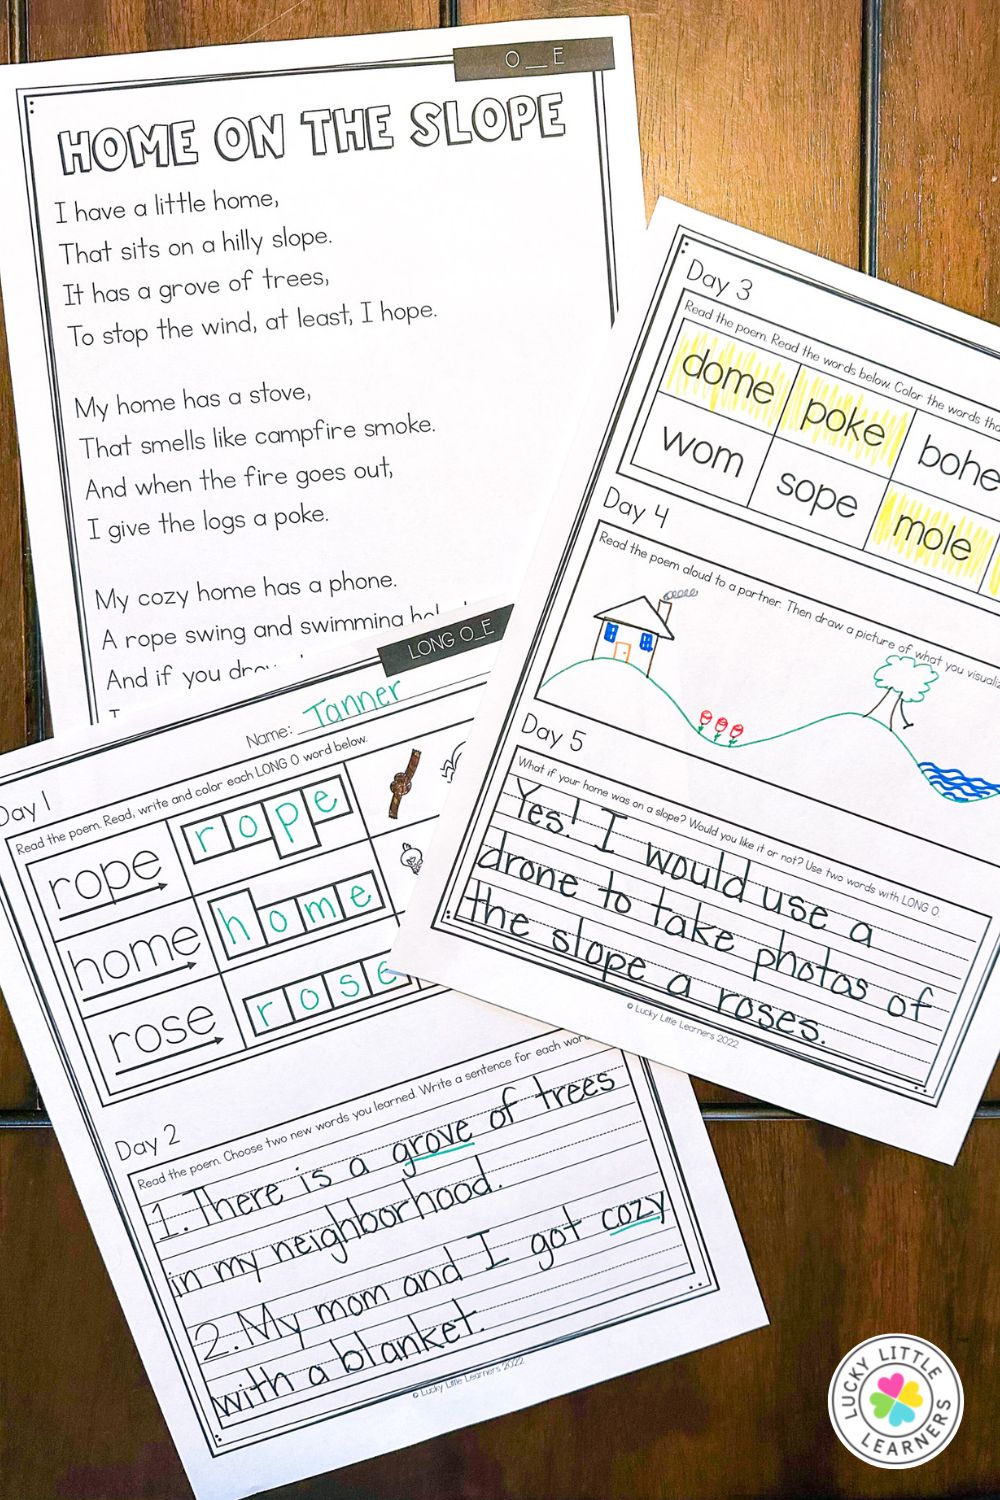 O __ E
HOME ON THE SLOPE
I have a little home,
That sits on a hilly slope.
It has a grove of trees,
To stop the wind, at least, I hope.
My home has a stove,
That smells like campfire smoke.
And when the fire goes out,
I give the logs a poke.
My cozy home has a phone.
A rope swing and swimming
And if you
Day 3
Read the poem. Read the words below. Color the words
dome poke bohe
wom sope mole
Day 4
Read the poem aloud to a partner. Then draw a picture of what you
Day 5
What if your home was on a slope? Would you like it or not? Use two words with LONG O.
Yes! I would use a
drone to take photos of
the slope a roses.
© Lucky Little Learners 2022
LONG O_E
Name: Tanner
Day 1
Read the poem. Read, write and color each LONG O word below.
rope rope
home home
rose rose
Day 2
Read the poem. Choose two new words you learned. Write a sentence for each
1. There is a grove of trees
in my neighborhood.
2. My mom and I got cozy
with a blanket.
© Lucky Little Learners 2022
LUCKY LITTLE
LEARNERS